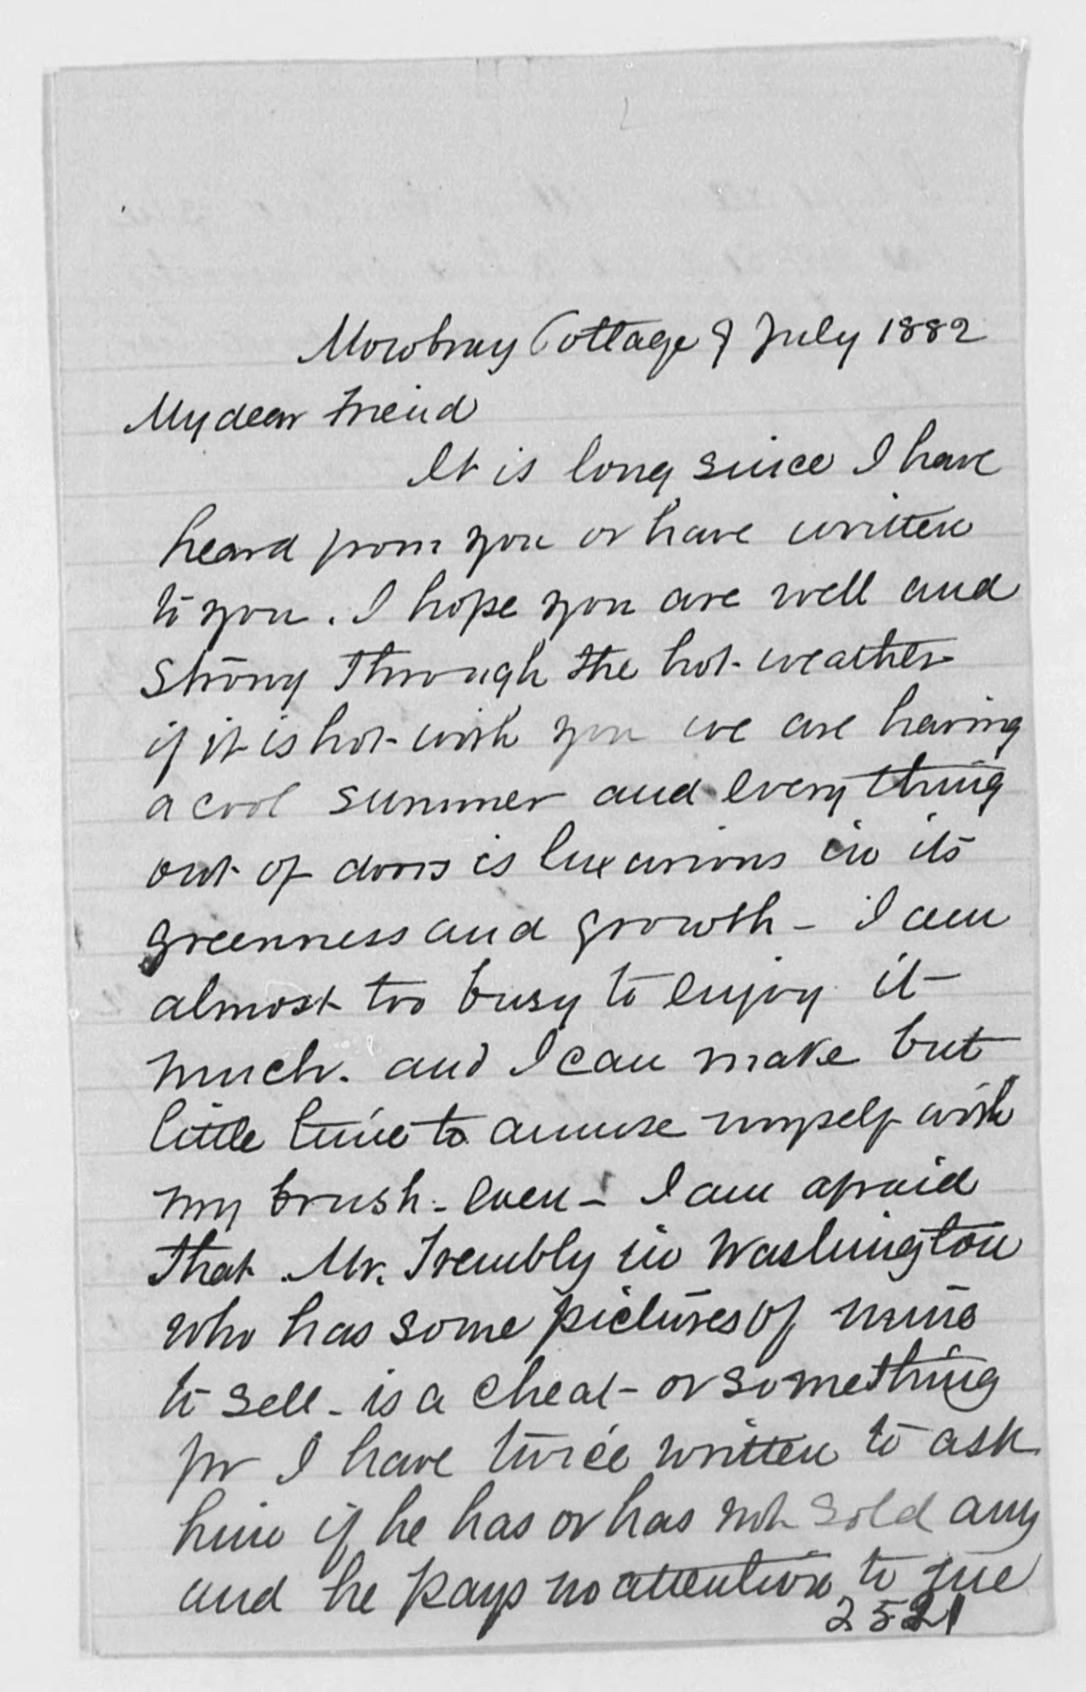 Mowbray Cottage 9 July 1882
My dear Friend
It is long since I have
heard from you or have written
to you. I hope you are well and
strong through the hot weather
if it is hot with you we are having
a cool summer and every thing
out of doors is luxurious in its
greenness and growth - I am
almost too busy to enjoy it
much. and I can make but
little time to amuse myself with
my brush - even - I am afraid
that Mr. Trembly in Washington
who has some pictures of mine
to sell - is a cheat - or something
for I have twice written to ask
him if he has or has not sold any
and he pays no attention to me
2521